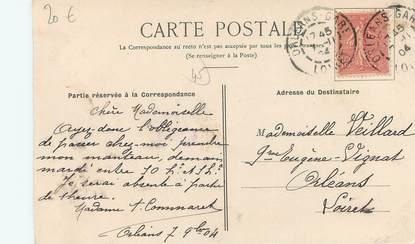 20 €
CARTE POSTALE
La Correspondance au recto n'est pas acceptée par tous les pays étrangers
(Se renseigner à la Poste)
45
ORLEANS GARE
LOIRET
Partie réservée à la Correspondance
Chère Mademoiselle
Ayez donc l'obligeance
de passer chez moi prendre
mon manteau, demain
mardi entre 10 h. et 1 h.
Je serai absente à partir
de 1 heure.
Madame
Orléans 7 9bre 04
Adresse du Destinataire
Mademoiselle Veillard
9 rue Eugène Vignat
Orléans
Loiret